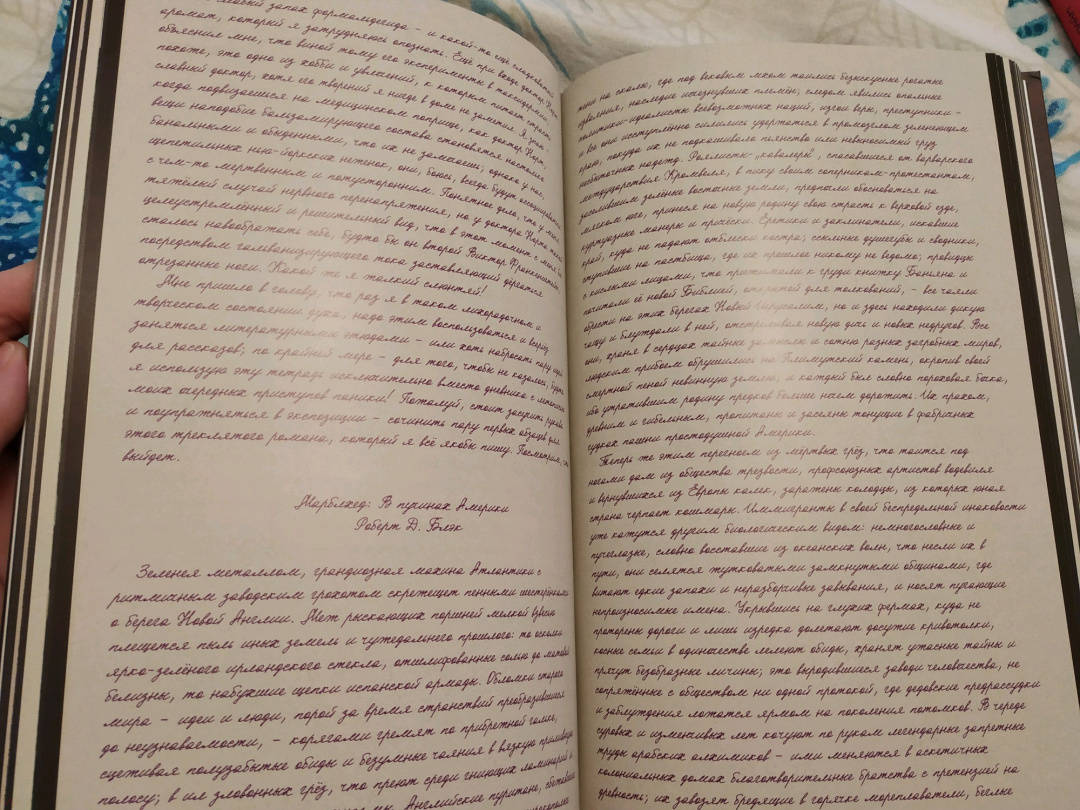 запах формальдегида – и какой-то ещё сладковатый
аромат, который я затрудняюсь опознать. Ещё при входе доктор Норт
объяснил мне, что виной тому его эксперименты в таксидермии:
похоже, это одно из хобби и увлечений, к которым питает страсть
славный доктор, хотя его творений я нигде в доме не заметил. Я знаю –
когда подвизаешься на медицинском поприще, как доктор Норт,
вещи наподобие бальзамирующего состава становятся настолько
банальными и обыденными, что их не замечаешь; однако у нас,
щепетильных нью-йоркских неженок, они, боюсь, всегда будут ассоциироваться
с чем-то мертвенным и потусторонним. Понятное дело, что у меня
тяжёлый случай нервного перенапряжения, но у доктора Норта такой
целеустремлённый и решительный вид, что в этот момент с меня
сталось навоображать себе, будто бы он второй Виктор Франкенштейн,
посредством гальванизирующего тока заставляющий дёргаться
отрезанные ноги. Какой же я жалкий слюнтяй!
Мне пришло в голову, что раз я в таком лихорадочном и
творческом состоянии духа, надо этим воспользоваться и всерьёз
заняться литературными этюдами – или хоть набросать пару идей
для рассказов; по крайней мере – для того, чтобы не казалось, будто
я использую эту тетрадь исключительно вместо дневника с
моих очередных приступов паники! Пожалуй, стоит засучить рукава
и поупражняться в экспозиции – сочинить пару первых абзацев для
этого треклятого романа, который я всё якобы пишу. Посмотрим, что
выйдет.
Марблхед: В пучинах Америки
Роберт Д. Блэк
Зеленея металлом, грандиозная махина Атлантики с
ритмичным заводским грохотом скрежещет пенными шестернями
о берега Новой Англии. Меж рыскающих поршней мелкой взвесью
плещется пыль иных земель и чужедального прошлого: то осколки
ярко-зелёного ирландского стекла, отшлифованные солью до матовой
белизны, то набухшие щепки испанской армады. Обломки старого
мира – идеи и люди, порой за время странствий преобразившиеся
до неузнаваемости, – корягами гремят по прибрежной гальке,
сцеживая полузабытые обиды и безумные чаяния в вязкую приливную
полосу; в ил зловонных грёз, что преют среди гниющих ламинарий и
Английские пуритане,
тени на скалю, где под вековым мхом таились безыскусные рогатые
изваяния, наследие исчезнувших племён; следом явились опальные
политики-идеалисты всевозможных наций, изгои веры, преступники –
и все они исступлённо силились удержаться в промозглом зеленеющем
краю, покуда их не подкашивало пьянство или невыносимый груз
несбыточных надежд. Роялисты-«кавалеры», спасавшиеся от варварского
междуцарствия Кромвеля, в пику своим соперникам-протестантам,
заселившим зелёные восточные земли, предпочли обосноваться на
мягком юге, принеся на новую родину свою страсть к верховой езде,
куртуазные манеры и причёски. Еретики и заклинатели, искавшие
край, куда не падают отблески костра; ссыльные душегубы и сводники,
ступившие на пастбища, где их прошлое никому не ведомо; провидцы
с кислыми лицами, что прижимали к груди книжку Баньяна и
почитали её новой Библией, открытой для толкований, – все чаяли
обрести на этих берегах Новый Иерусалим, но и здесь находили дикую
чащу и блуждали в ней, отстреливая новую дичь и новых недругов. Все
они, храня в сердцах тайные и сотню разных загробных миров,
людским прибоем обрушились на Плимутский камень, окропив своей
смертной пеной невинную землю, и каждый был словно пороховая бочка,
ибо утратившим родину предков больше нечем дорожить. Их прахом,
древним и сивилльным, пропитаны и засеяны тонущие в фабричных
гудках пашни простодушной Америки.
Теперь же этим перегноем из мёртвых грёз, что таится под
ногами дам из общества трезвости, профсоюзных артистов водевиля
и вернувшихся из Европы калек, заражены колодцы, из которых юная
страна черпает кошмары. Иммигранты в своей беспредельной инаковости
уже кажутся другим биологическим видом: немногословные и
пучеглазые, словно восставшие из океанских волн, что несли их в
пути, они селятся жутковатыми замкнутыми общинами, где
витают едкие запахи и неразборчивые завывания, и носят пугающие
непроизносимые имена. Укрывшись на глухих фермах, куда не
проторены дороги и лишь изредка долетают досужие кривотолки,
косные семьи в одиночестве лелеют обиды, хранят ужасные тайны и
прячут безобразные личины; это выродившиеся заводи человечества, не
сопряжённые с обществом ни одной протокой, где дедовские предрассудки
и заблуждения ложатся ярмом на поколения потомков. В череде
суровых и изменчивых лет кочуют по рукам легендарные запретные
труды арабских алхимиков – ими меняются в аскетичных
колониальных домах благотворительные братства с претензией на
древность; их завозят бредящие в горячке мореплаватели, беглые